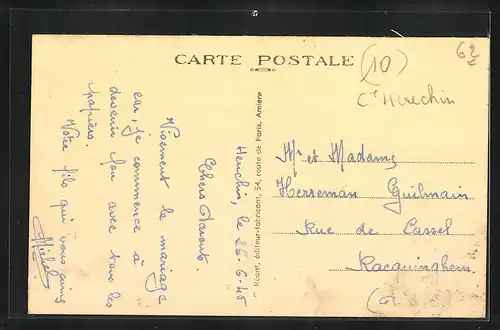 CARTE POSTALE
(10)
62
Henchin, le 26-6-45
Chers Parents.
Vivement le mariage
car, je commence à
devenir fou avec tous les
papiers.
Votre fils qui vous aime
Michel
Réant, éditeur-fabricant, 54, route de Paris, Amiens
Mr et Madame
Herreman Guilmain
Rue de Cassel
Racquinghem